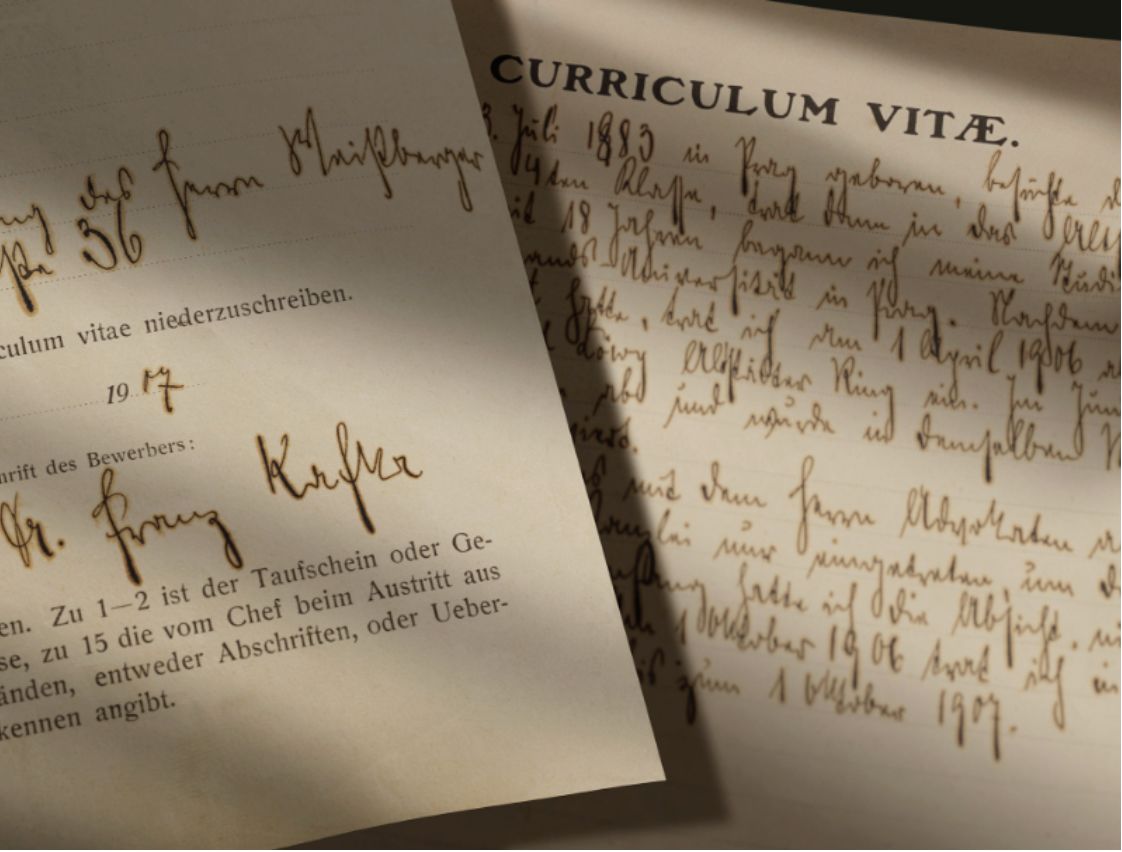 ng des Herrn Weißberger
ße 36
culum vitae niederzuschreiben.
1907
hrift des Bewerbers:
Dr. Franz Kafka
en. Zu 1—2 ist der Taufschein oder Ge-
se, zu 15 die vom Chef beim Austritt aus
änden, entweder Abschriften, oder Ueber-
kennen angibt.
CURRICULUM VITÆ.
3. Juli 1883 in Prag geboren, besuchte d
4ten Klasse, trat dann in das Altst
it 18 Jahren begann ich meine Studi
ands-Universität in Prag. Nachdem
hatte, trat ich am 1 April 1906 a
Löwy Altstädter Ring ein. Im Jun
ab und wurde in demselben
viert.
mit dem Herrn Advokaten
anzlei nur eingetreten, um d
nfang hatte ich die Absicht, ni
1 Oktober 1906 trat ich in
bis zum 1 Oktober 1907.